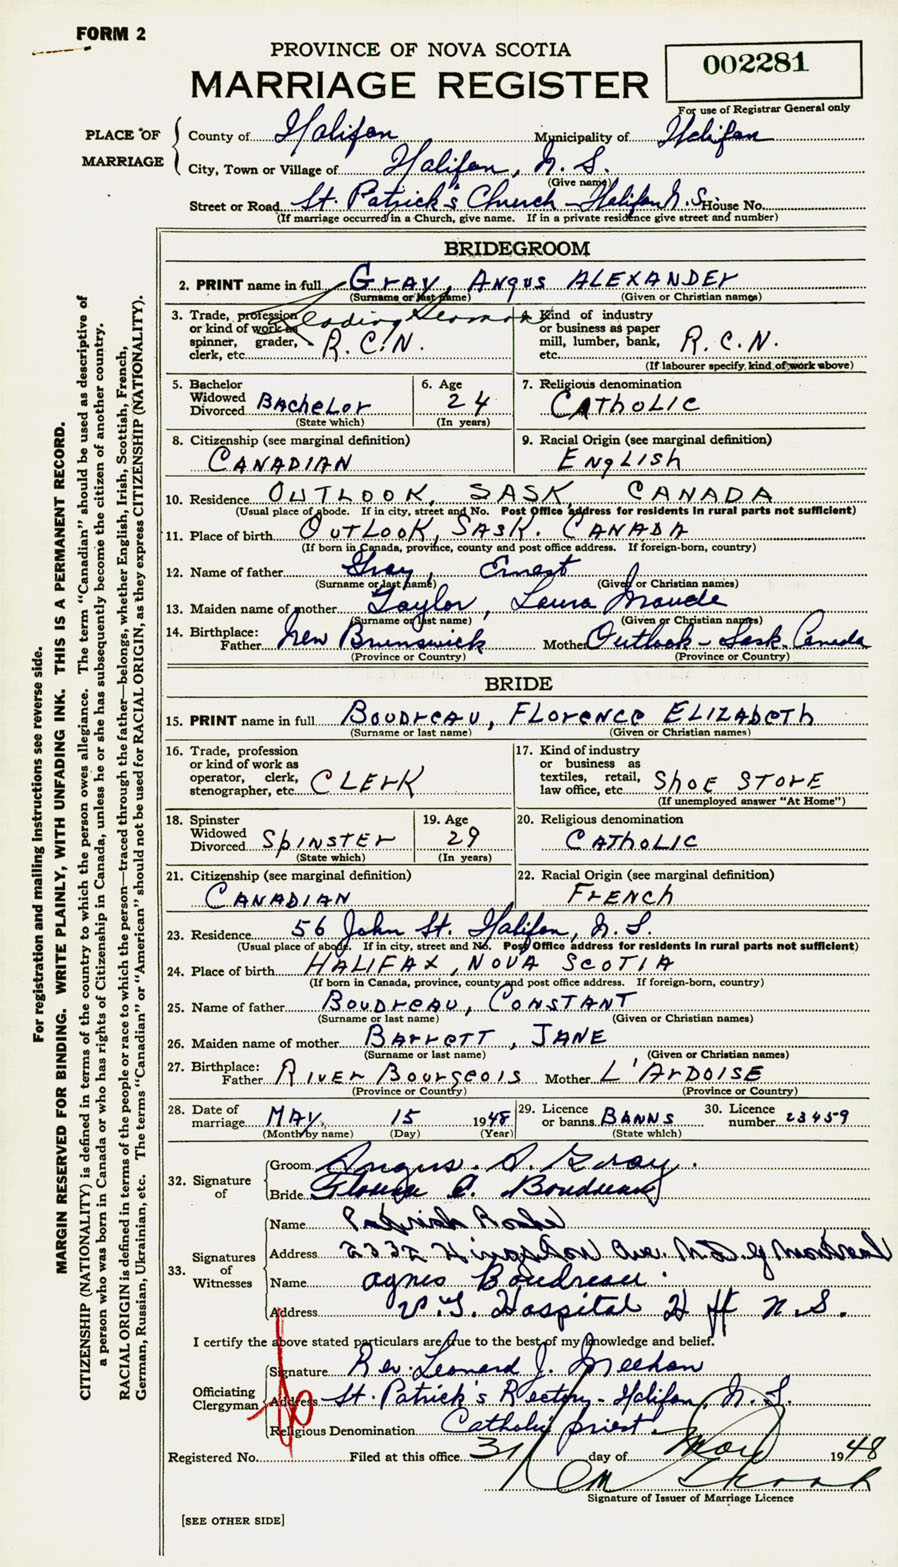 FORM 2
PROVINCE OF NOVA SCOTIA
MARRIAGE REGISTER
002281
For use of Registrar General only
PLACE OF MARRIAGE
County of Halifax Municipality of Halifax
City, Town or Village of Halifax, N. S.
(Give name)
Street or Road St. Patrick's Church - Halifax N. S. House No.
(If marriage occurred in a Church, give name. If in a private residence give street and number)
BRIDEGROOM
2. PRINT name in full GRAY, ANGUS ALEXANDER
(Surname or last name) (Given or Christian names)
3. Trade, profession or kind of work as spinner, grader, clerk, etc. Leading Seaman R.C.N.
4. Kind of industry or business as paper mill, lumber, bank, etc. R.C.N.
(If labourer specify kind of work above)
5. Bachelor Widowed Divorced BACHELOR
(State which)
6. Age 24
(In years)
7. Religious denomination
CATHOLIC
8. Citizenship (see marginal definition)
CANADIAN
9. Racial Origin (see marginal definition)
ENGLISH
10. Residence OUTLOOK, SASK, CANADA
(Usual place of abode. If in city, street and No. Post Office address for residents in rural parts not sufficient)
11. Place of birth OUTLOOK, SASK. CANADA
(If born in Canada, province, county and post office address. If foreign-born, country)
12. Name of father Gray, Ernest
(Surname or last name) (Given or Christian names)
13. Maiden name of mother Taylor, Laura Maude
(Surname or last name) (Given or Christian names)
14. Birthplace: Father New Brunswick Mother Outlook - Sask. Canada
(Province or Country) (Province or Country)
BRIDE
15. PRINT name in full BOUDREAU, FLORENCE ELIZABETH
(Surname or last name) (Given or Christian names)
16. Trade, profession or kind of work as operator, clerk, stenographer, etc. CLERK
17. Kind of industry or business as textiles, retail, law office, etc. SHOE STORE
(If unemployed answer "At Home")
18. Spinster Widowed Divorced SPINSTER
(State which)
19. Age 29
(In years)
20. Religious denomination
CATHOLIC
21. Citizenship (see marginal definition)
CANADIAN
22. Racial Origin (see marginal definition)
FRENCH
23. Residence 56 John St. Halifax, N. S.
(Usual place of abode. If in city, street and No. Post Office address for residents in rural parts not sufficient)
24. Place of birth HALIFAX, NOVA SCOTIA
(If born in Canada, province, county and post office address. If foreign-born, country)
25. Name of father BOUDREAU, CONSTANT
(Surname or last name) (Given or Christian names)
26. Maiden name of mother BARROTT, JANE
(Surname or last name) (Given or Christian names)
27. Birthplace: Father RIVER BOURGEOIS Mother L'ARDOISE
(Province or Country) (Province or Country)
28. Date of marriage MAY, 15 1948
(Month by name) (Day) (Year)
29. Licence or banns BANNS
(State which)
30. Licence number 23459
32. Signature of
Groom Angus A. Gray.
Bride Florence E. Boudreau
33. Signatures of Witnesses
Name Patrick Roche
Address 2332 Kingston Ave. N.D.G Montreal
Name Agnes Boudreau.
Address V.G. Hospital Hfx N.S.
I certify the above stated particulars are true to the best of my knowledge and belief.
Officiating Clergyman
Signature Rev. Leonard J. Meehan
Address St. Patrick's Rectory - Halifax, N. S.
Religious Denomination Catholic priest.
Registered No. Filed at this office 31 day of May 1948
Signature of Issuer of Marriage Licence
[SEE OTHER SIDE]
For registration and mailing instructions see reverse side.
MARGIN RESERVED FOR BINDING. WRITE PLAINLY, WITH UNFADING INK. THIS IS A PERMANENT RECORD.
CITIZENSHIP (NATIONALITY) is defined in terms of the country to which the person owes allegiance. The term "Canadian" should be used as descriptive of
a person who was born in Canada or who has rights of Citizenship in Canada, unless he or she has subsequently become the citizen of another country.
RACIAL ORIGIN is defined in terms of the people or race to which the person—traced through the father—belongs, whether English, Irish, Scottish, French,
German, Russian, Ukrainian, etc. The terms "Canadian" or "American" should not be used for RACIAL ORIGIN, as they express CITIZENSHIP (NATIONALITY).